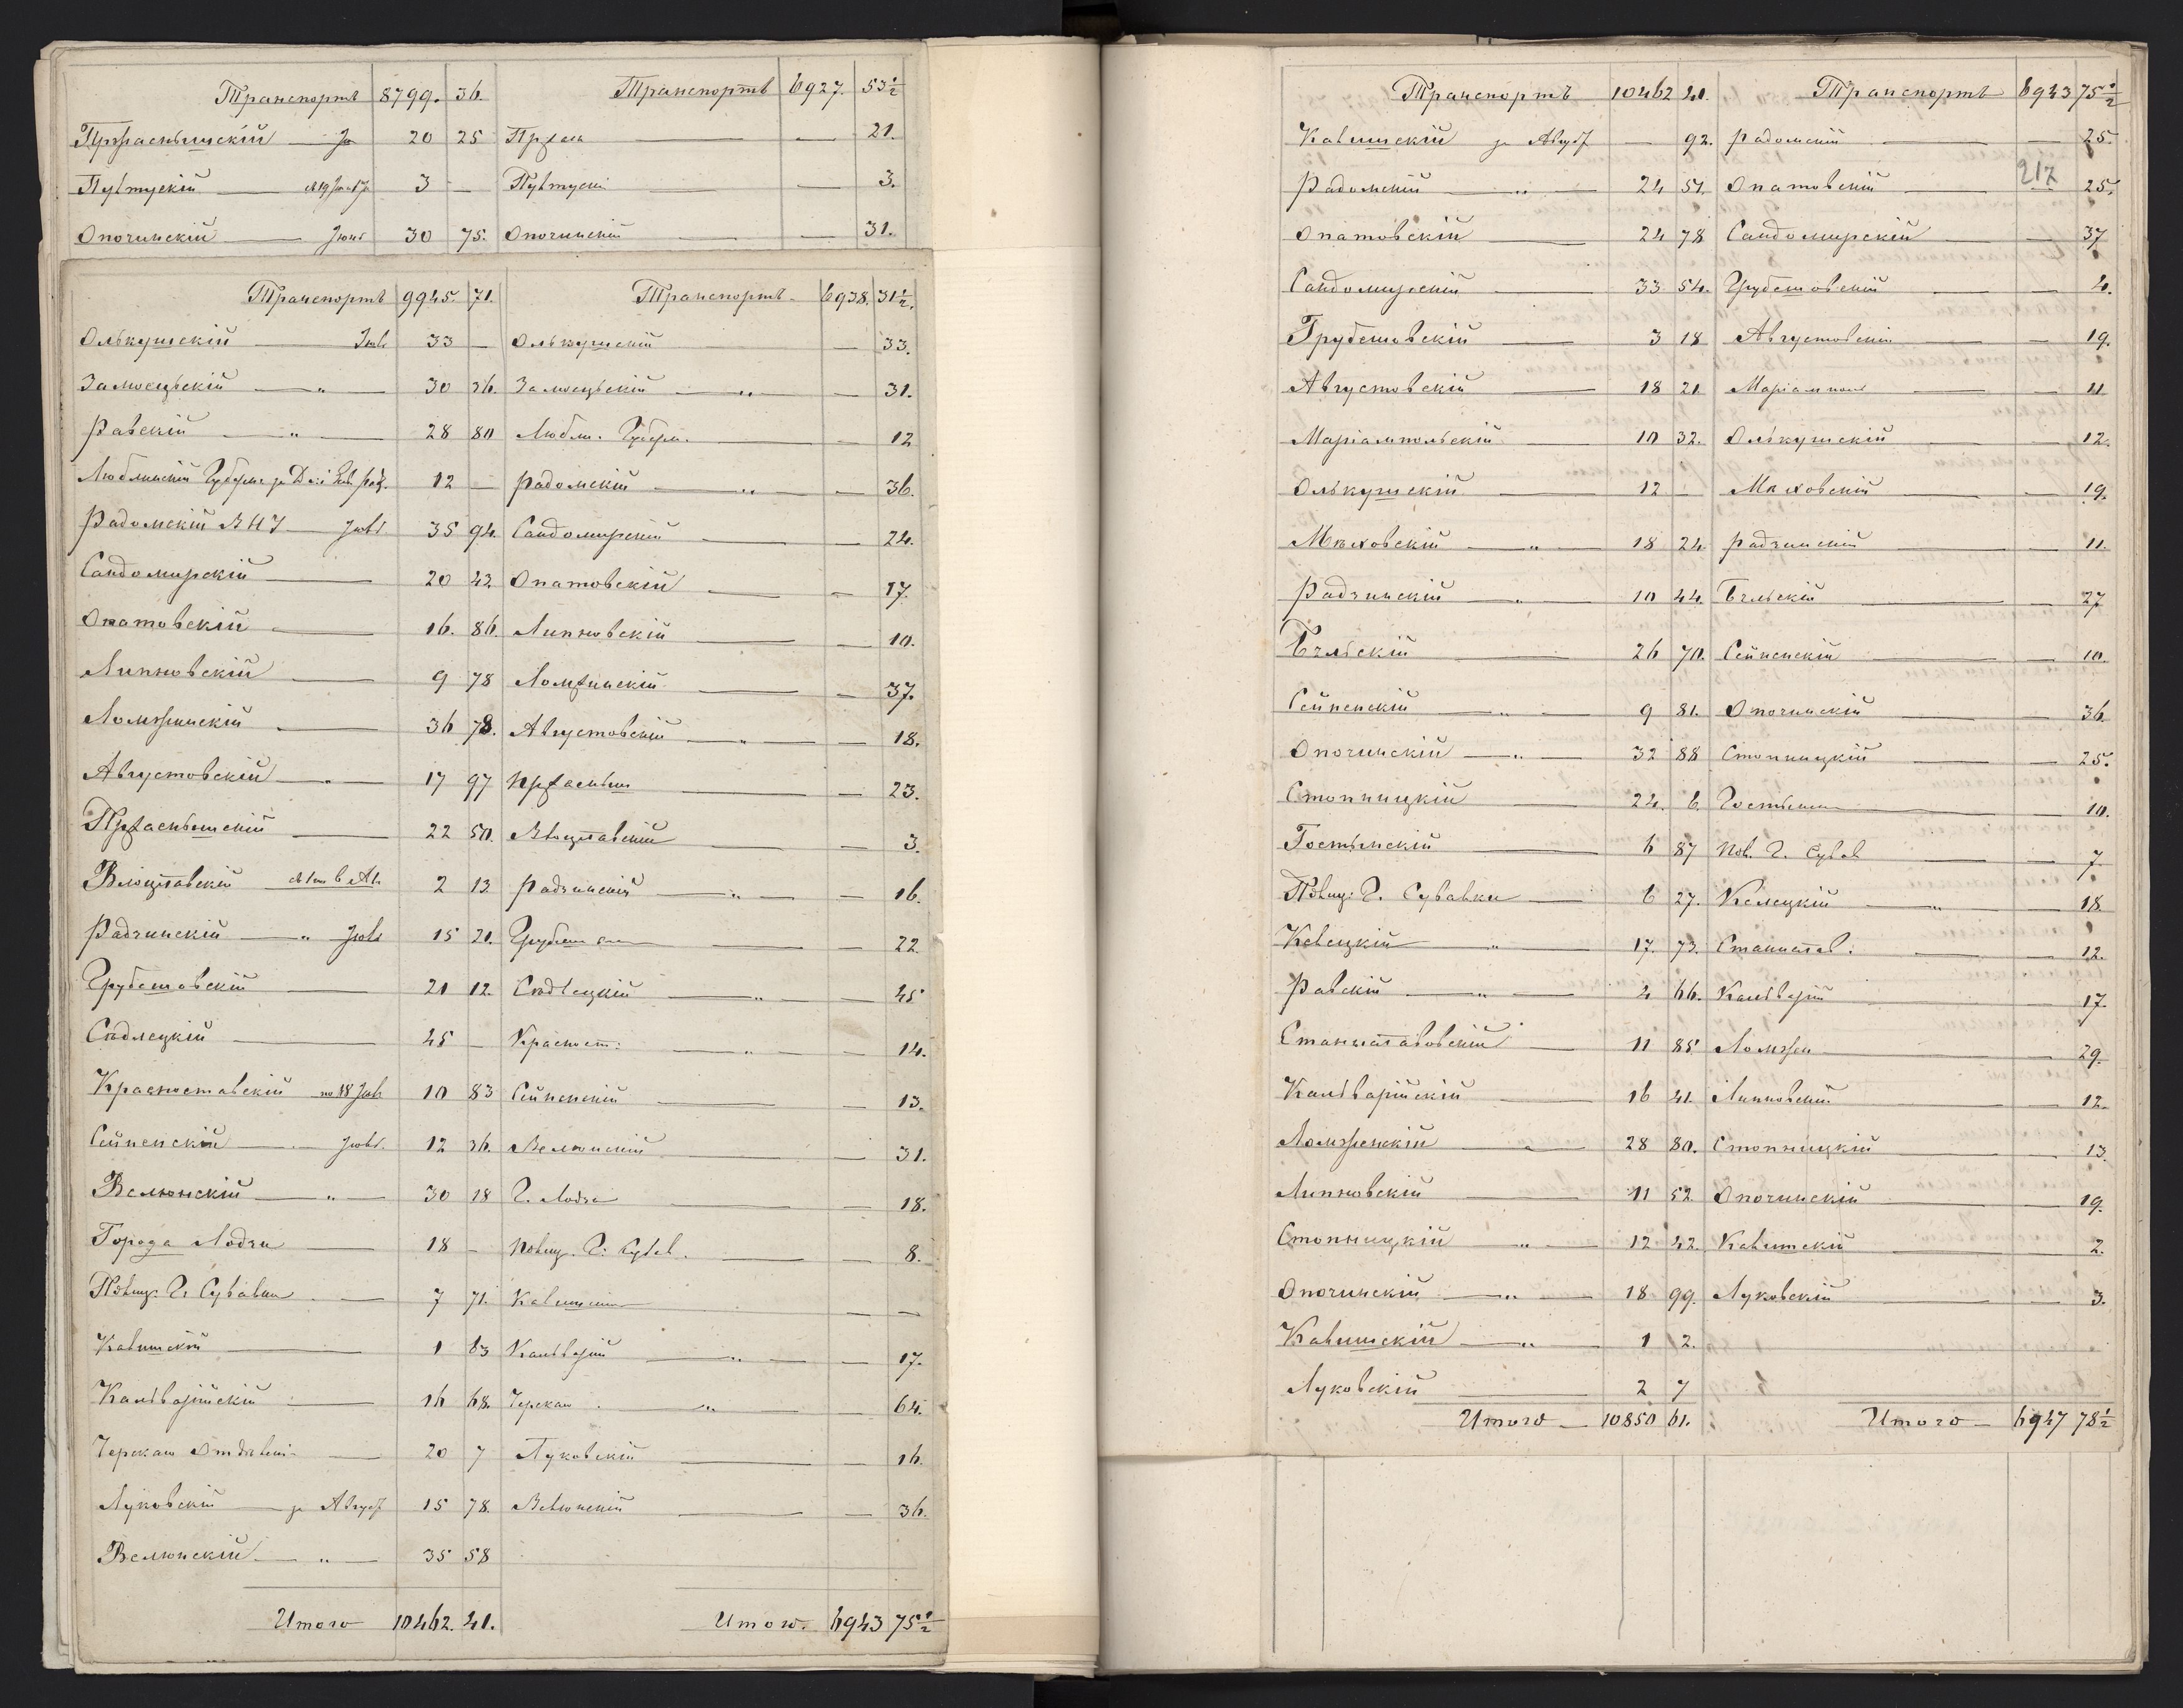 Транспортъ 8799. 36. Транспортъ 6927. 53½
Пржаснышскій 20 25 21.
Пултускій 3 — Пултускі — 3.
Опочинскій Іюнь 30 75. Опочинскій — 31.
Транспортъ 9945. 71. Транспортъ 6938. 31½
Олькушскій Іюль 33 — Олькушскій — 33.
Замосцьскій „ 30 36. Замосцьскій „ — 31.
Равскій „ 28 80 Любл. Губерн. — 12
Люблинскій 12 — Радомскій „ — 36.
Радомскій Іюль 35 94. Сандомирскій — 24.
Сандомирскій 20 42 Опатовскій — 17.
Опатовскій 16. 86. Липновскій — 10.
Липновскій 9 78 Ломжинскій — 37.
Ломжинскій 36 78. Августовскій „ — 18.
Августовскій „ 17 97 Пржасныш — 23.
Пржаснышскій 22 50. Влоцлавскій — 3.
Влоцлавскій 2 13 Радзинскій „ — 16.
Радзинскій „ Іюль 15 21. Грубеш — 22.
Грубешовскій 21 12. Сѣдлецкій „ — 45
Сѣдлецкій 45 — Красност: „ — 14.
Красноставскій по 18 Іюль 10 83 Сейненскій — 13.
Сейненскій Іюль. 12 36. Велюнскій — 31.
Велюнскій „ 30 18 Г. Лодзи — 18.
Города Лодзи 18 — Полиц. Г. Сувал. — 8.
Полиц. Г. Сувалки 7 71. Калишскій — —
Калишскій 1 83 Кальварій „ — 17.
Кальварійскій 16 68. „ — 64.
20 7 Луковскій — 16.
Луковскій за Август 15 78. Велюнскій — 36.
Велюнскій „ 35 58
Итого 10462. 41. Итого. 6943 75½
Транспортъ 10462 41. Транспортъ 6943 75½
Калишскій за Август — 92. Радомскій — 25.
217
Радомскій „ 24 51. Опатовскій — 25.
Опатовскій 24 78 Сандомирскій — 37
Сандомирскій 33 54. Грубешовскій — 4.
Грубешовскій 3 18 Августовскій — 19.
Августовскій 18 21 Маріампол — 11
Маріампольскій 10 32. Олькушскій — 12.
Олькушскій 12 — Мѣховскій — 19.
Мѣховскій „ 18 24 Радзинскій — 11.
Радзинскій „ 10 44. Бѣльскій — 27
Бѣльскій 26 70. Сейненскій — 10.
Сейненскій „ 9 81. Опочинскій — 36.
Опочинскій „ 32 88 Стопницкій — 25.
Стопницкій 24. 6. Гостынскій — 10.
Гостынскій 6 87 Пол. Г. Сувал — 7.
Полиц: Г. Сувалки 6 27. Келецкій „ — 18
Келецкій „ 17. 73. Станислав: — 12.
Равскій „ 4 66. Кальварій — 17.
Станиславовскій 11 85 Ломжи — 29.
Кальварійскій 16 41. Липновскій — 12.
Ломжинскій 28 80. Стопницкій — 13.
Липновскій 11 52 Опочинскій — 19.
Стопницкій „ 12 42. Калишскій — 2.
Опочинскій „ 18 99. Луковскій — 3.
Калишскій „ 1 2.
Луковскій 2 7
Итого 10850 61. Итого 6947 78½